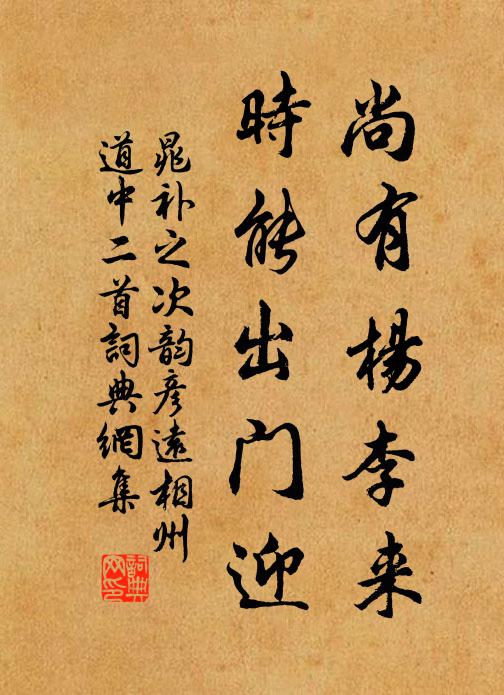 尚有楊李来
時能出门迎
晁补之次韵彦遠相州
道中二首詞典網集
詞典网印